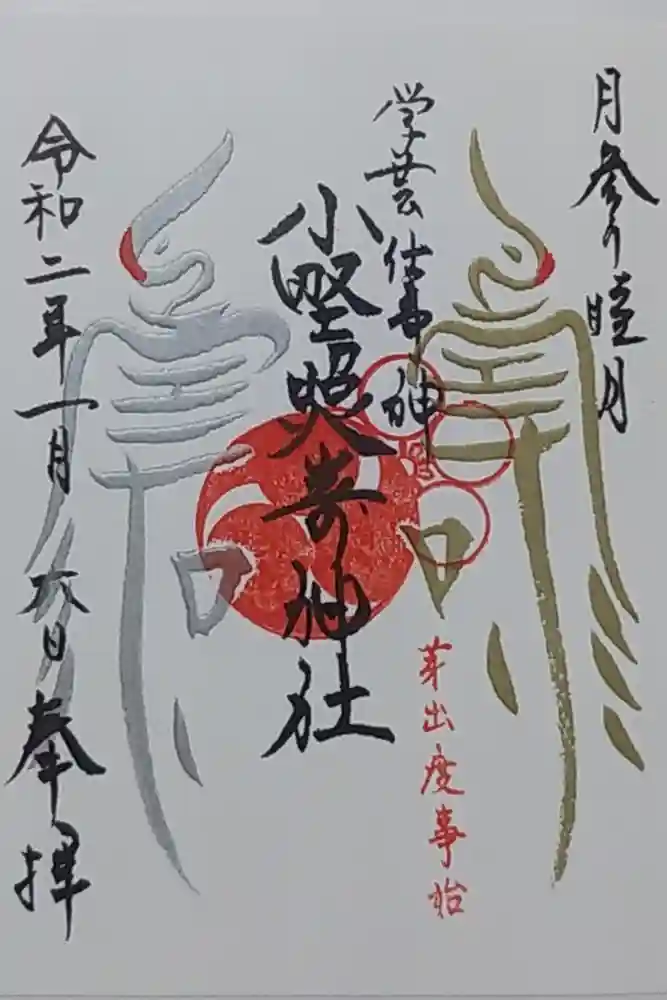 月参り睦月
学芸仕事ノ神
芽出度事始
小野照崎神社
令和二年一月六日
奉拝